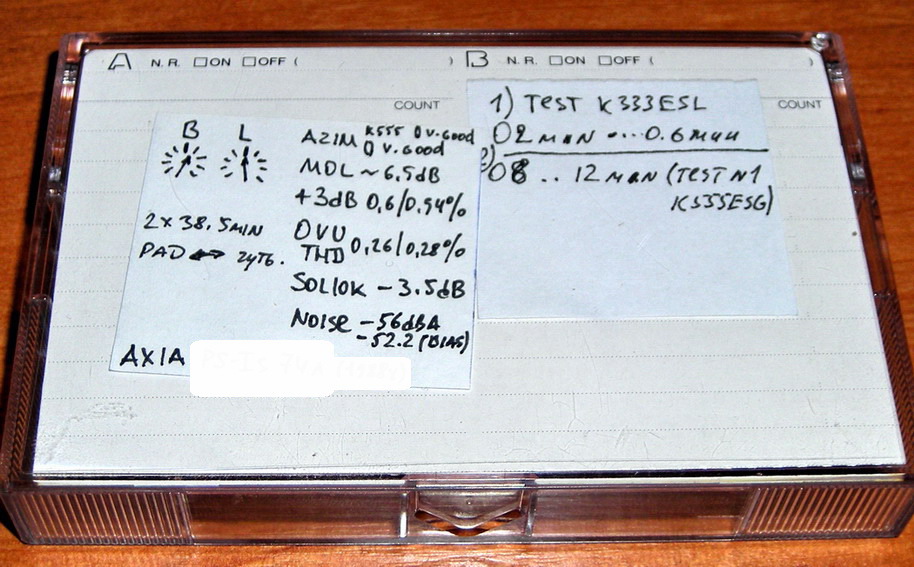 A N.R. □ON □OFF ( )
COUNT
B L
2x38.5MIN
PAD ↔
AZIM K555 0 V.GOOD
0 V.GOOD
MOL ~ 6.5dB
+3dB 0,6/0.94%
OVU
THD 0,26/0,28%
SOL10K -3.5dB
NOISE -56dBA
-52.2 (BIAS)
AXIA
B N.R. □ON □OFF ( )
COUNT
1) TEST K333ESL
02 MIN ... 0.6 мин
2)
08 .. 12 MIN (TEST N1
K555ESG)